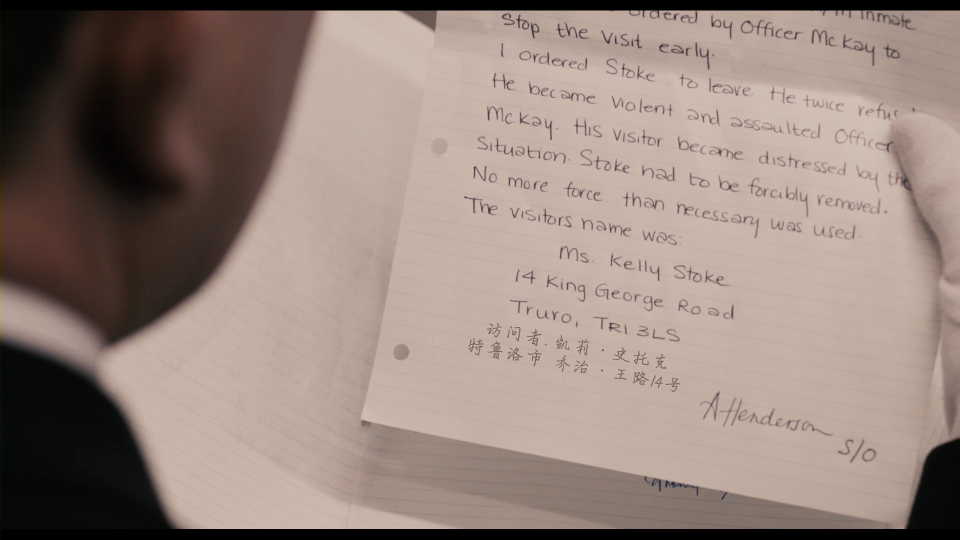 ordered by Officer McKay to
Stop the visit early.
I ordered Stoke to leave. He twice
He became violent and assaulted Officer
McKay. His visitor became distressed by the
Situation. Stoke had to be forcibly removed.
No more force than necessary was used.
The visitors name was:
Ms. Kelly Stoke
14 King George Road
Truro, TR1 3LS
访问者.凯莉·史托克
特鲁洛市 乔治·王路14号
AHenderson
S/O